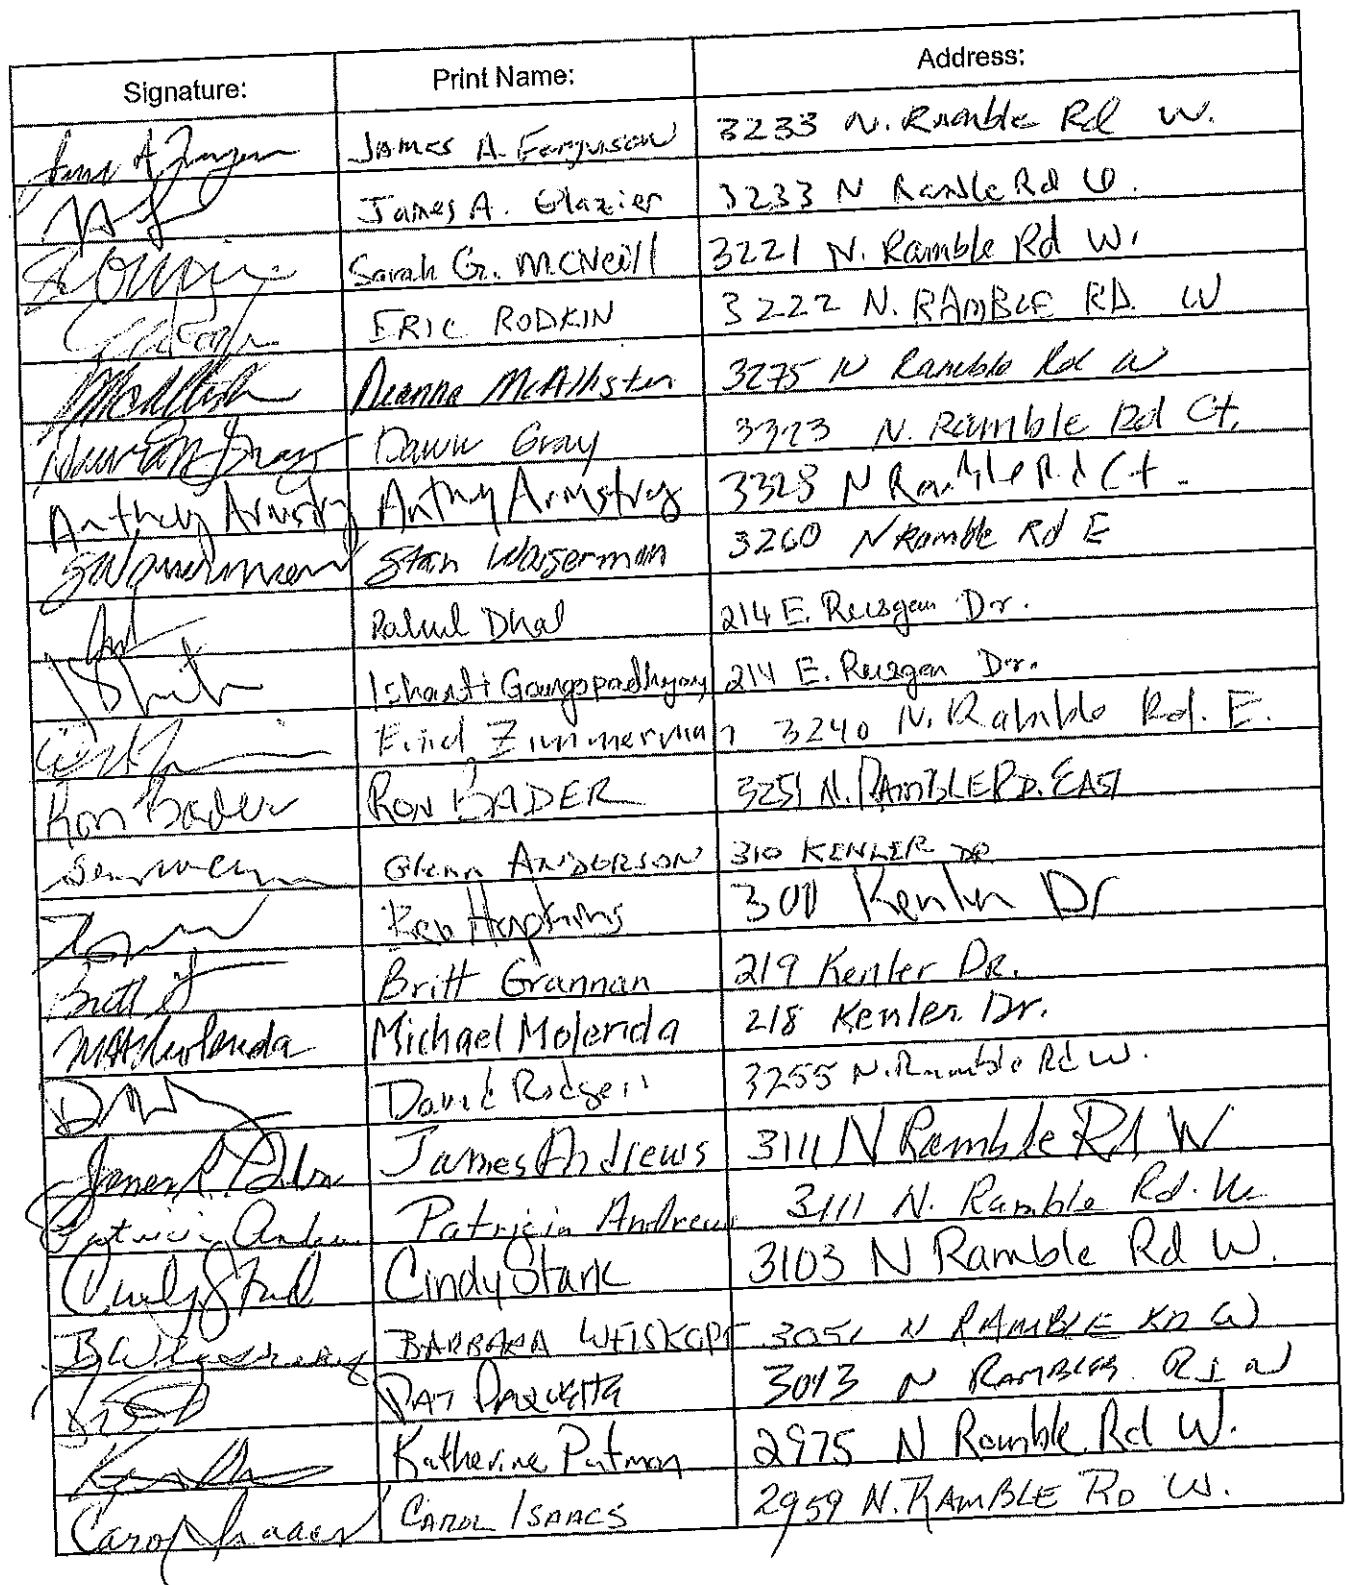 Signature: Print Name: Address:
James A. Ferguson 3233 N. Ramble Rd W.
James A. Glazier 3233 N Ramble Rd W.
Sarah G. McNeill 3221 N. Ramble Rd W.
ERIC RODKIN 3222 N. RAMBLE RD. W
McAllister Deanna McAllister 3275 N Ramble Rd W
Dawn Gray Dawn Gray 3323 N. Ramble Rd Ct.
Anthony Armstrg Anthny Armstrg 3328 N Ramble Rd Ct.
Stan Wasserman 3260 N Ramble Rd E
Dhal 214 E. Reisgen Dr.
Ishanti Gangopadhyay 214 E. Reisgen Dr.
Zimmerman 3240 N. Ramble Rd. E.
Ron Bader RON BADER 3251 N. RAMBLE RD. EAST
Glenn ANDERSON 310 KENLER DR
Hopkins Kenler Dr
Britt Britt Grannan 219 Kenler DR.
Molenda Michael Molenda 218 Kenler Dr.
David Rodgers 3255 N. Ramble Rd W.
James Andrews 3111 N Ramble Rd W
Patricia Andrew Patricia Andrews 3111 N. Ramble Rd. W.
Cindy Stark Cindy Stark 3103 N Ramble Rd W.
BARBARA WEISKOPF 3051 N RAMBLE RD W
PAT PAQUETTE 3013 N RAMBLE Rd W
Katherine Putman 2975 N Ramble Rd W.
Carol Isaacs CAROL ISAACS 2959 N. RAMBLE RD W.